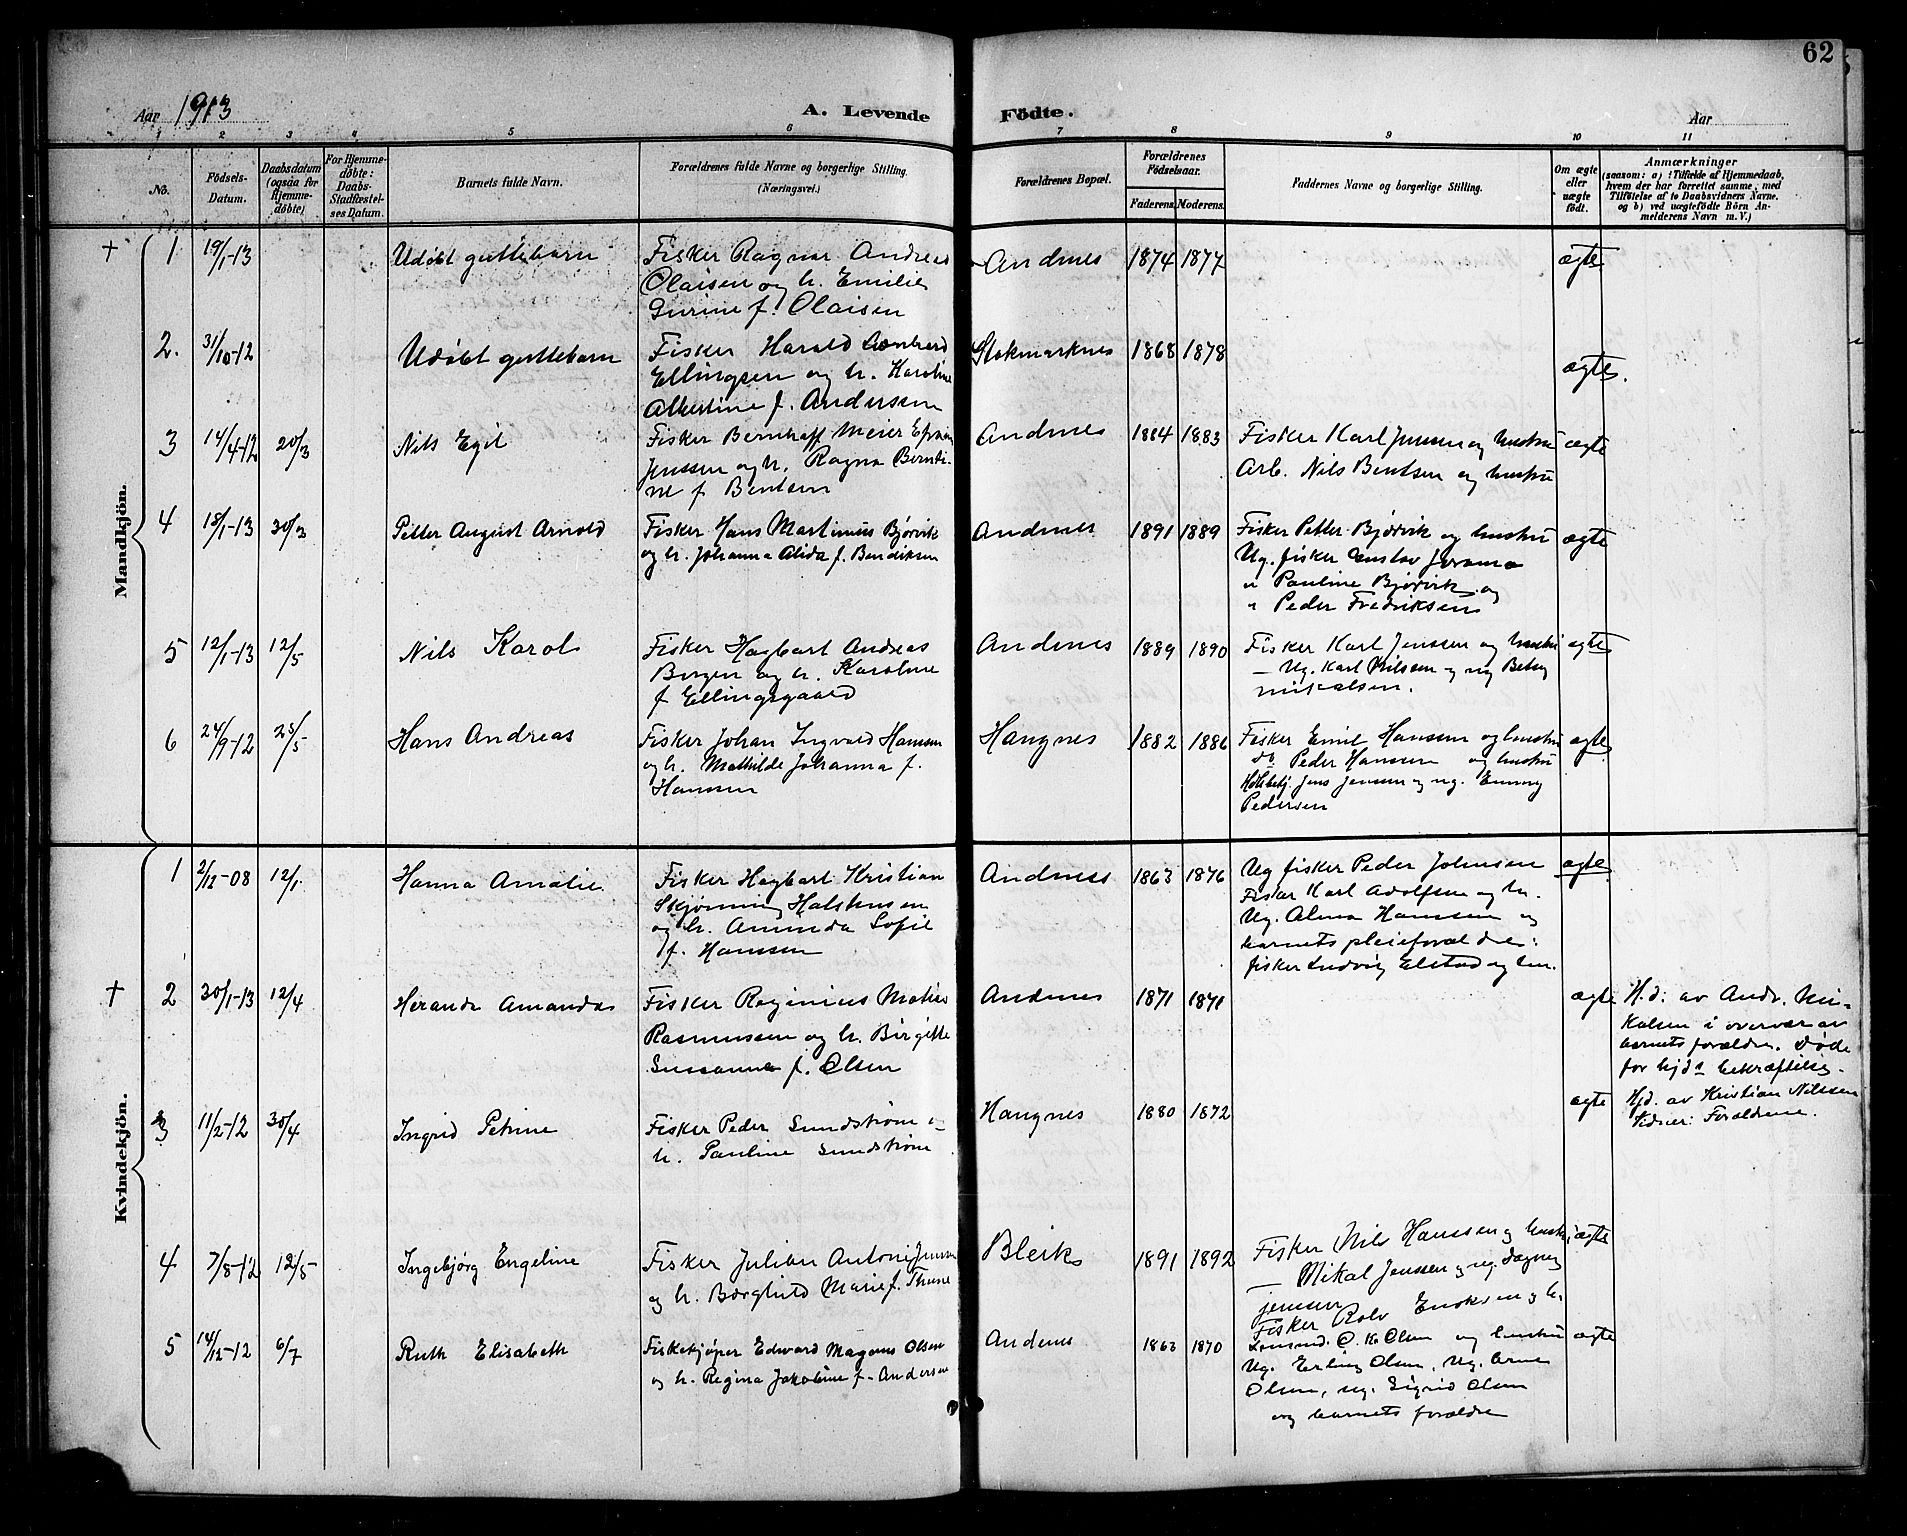 62
Aar 1913 A. Levende Födte. Aar
1 2 3 4 5 6 7 8 9 10 11
No.
Födsels-Datum.
Daabsdatum (ogsaa for Hjemme-döbte)
For Hjemme-döbte: Daabs-Stadfæstel-ses Datum.
Barnets fulde Navn.
Forældrenes fulde Navne og borgerlige Stilling.
(Næringsvei.)
Forældrenes Bopæl.
Forældrenes Födselsaar.
Faderens. Moderens.
Faddernes Navne og borgerlige Stilling.
Om ægte eller uægte födt.
Anmærkninger
(saasom: a) i Tilfælde af Hjemmedaab,
hvem der har forrettet samme, med
Tilföielse af to Daabsvidners Navne.
og b) ved uægtefödte Börn An-
melderens Navn m. V.)
Mandkjön.
† 1 19/1-13 Udøbt guttebarn Fisker Ragnar Andreas Andenes 1874 1877 ægte
Olaisen og h. Emilie
Gurine f. Olaisen
2. 31/10-12 Udøbt guttebarn Fisker Harald Stokmarknes 1868 1878 ægte.
Ellingsen og h. Karoline
Albertine f. Andersen
3 14/4-12 20/3 Nils Egil Fisker Bernhoff Meier Andenes 1884 1883 Fisker Karl Jenssen og hustru ægte
Jenssen og h. Ragna Berndi- Arb. Nils Bentsen og hustru
ne f. Bentsen
4 18/1-13 30/3 Petter August Arnold Fisker Hans Martinius Bjørvik Andenes 1891 1889 Fisker Petter Bjørvik og hustru ægte
og h. Johanna Alida f. Bendiksen Ug. fisker Gustav
" Pauline Bjørvik og
" Peder Fredriksen
5 12/1-13 12/5 Nils Karol Fisker Hagbart Andreas Andenes 1889 1890 Fisker Karl Jenssen og hustru ægte
og h. Karoline — Ug. Karl Nilsen og ug Betsy
f Ellingsgaard Mikalsen.
6 24/9-12 25/5 Hans Andreas Fisker Johan Ingvald Hansen Haugnes 1882 1886 Fisker Emil Hansen og hustru ægte
og h. Mathilde Johanna f. do Peder Hansen og hustru
Hansen Jens Jensen og ug. Emmy
Pedersen
Kvindekjön.
1 2/12-08 12/1 Hanna Amalie Fisker Hagbart Kristian Andenes 1863 1876 Ug fisker Peder Johnsen ægte
Skjønning Halshusen Fisker Karl Adolfsen og h.
og h. Aminda Sofie Ug. Alma Hanssen og
f. Hanssen barnets pleieforældre:
fisker Ludvig Elstad og hu.
† 2 30/1-13 12/4 Heranda Amanda Fisker Reginius Andenes 1871 1871 ægte H.d. av Andr. Mi-
Rasmussen og h. Birgitte kalsen i overvær av
Susanna f. Olsen barnets forældre. Døde
for hjds bekræftelse.
3 11/2-12 30/4 Ingrid Petrine Fisker Peder Sundstrøm og Haugnes 1880 1872 ægte Hjd. av Kristian Nilssen
h. Pauline Sundstrøm Vidner: Forældrene.
4 7/8-12 12/5 Ingebjørg Engeline Fisker Julian Antoni Jensen Bleik 1891 1892 Fisker Nils Hanssen og hustru ægte
og h. Borghild Marie f. Thune — Mikal Jenssen og ug. Dagny
Jenssen
Fisker Rolv Enoksen og h.
5 14/12-12 6/7 Ruth Elisabeth Fiskekjøper Edvard Magnus Olsen Andenes 1863 1870 Lensmd. O. K. Olsen og hustru ægte
og h. Regina Jakobine f. Andersen Ug. Erling Olsen, ug. Arne
Olsen, ug. Sigrid Olsen
og barnets forældre